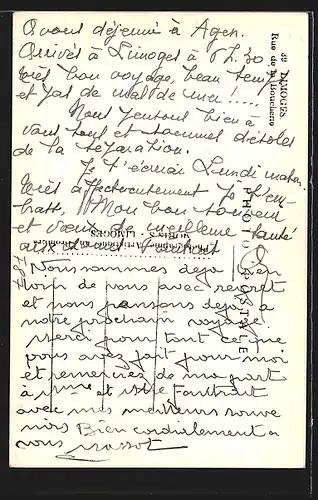 Avons déjeuné à Agen.
Arrivés à Limoges à 5h.30
très bon voyage, beau temps
et pas de mal de mer !....
Nous pensons bien à
vous tous et sommes désolés
de la séparation.
Je t'écrirai Lundi matin.
très affectueusement Je t'em-
brasse, Mon bon souvenir
et vœux de meilleure santé
aux
Nous sommes déjà bien
loin de vous avec regret
et nous pensons déjà a
notre prochain voyage.
Merci pour tout ce que
vous avez fait pour moi
et remerciez de ma part
à Mme et Mr
avec mes meilleurs souve
nirs Bien cordialement a
vous
LIMOGES
Rue de la Boucherie
PHOTO POSTALE